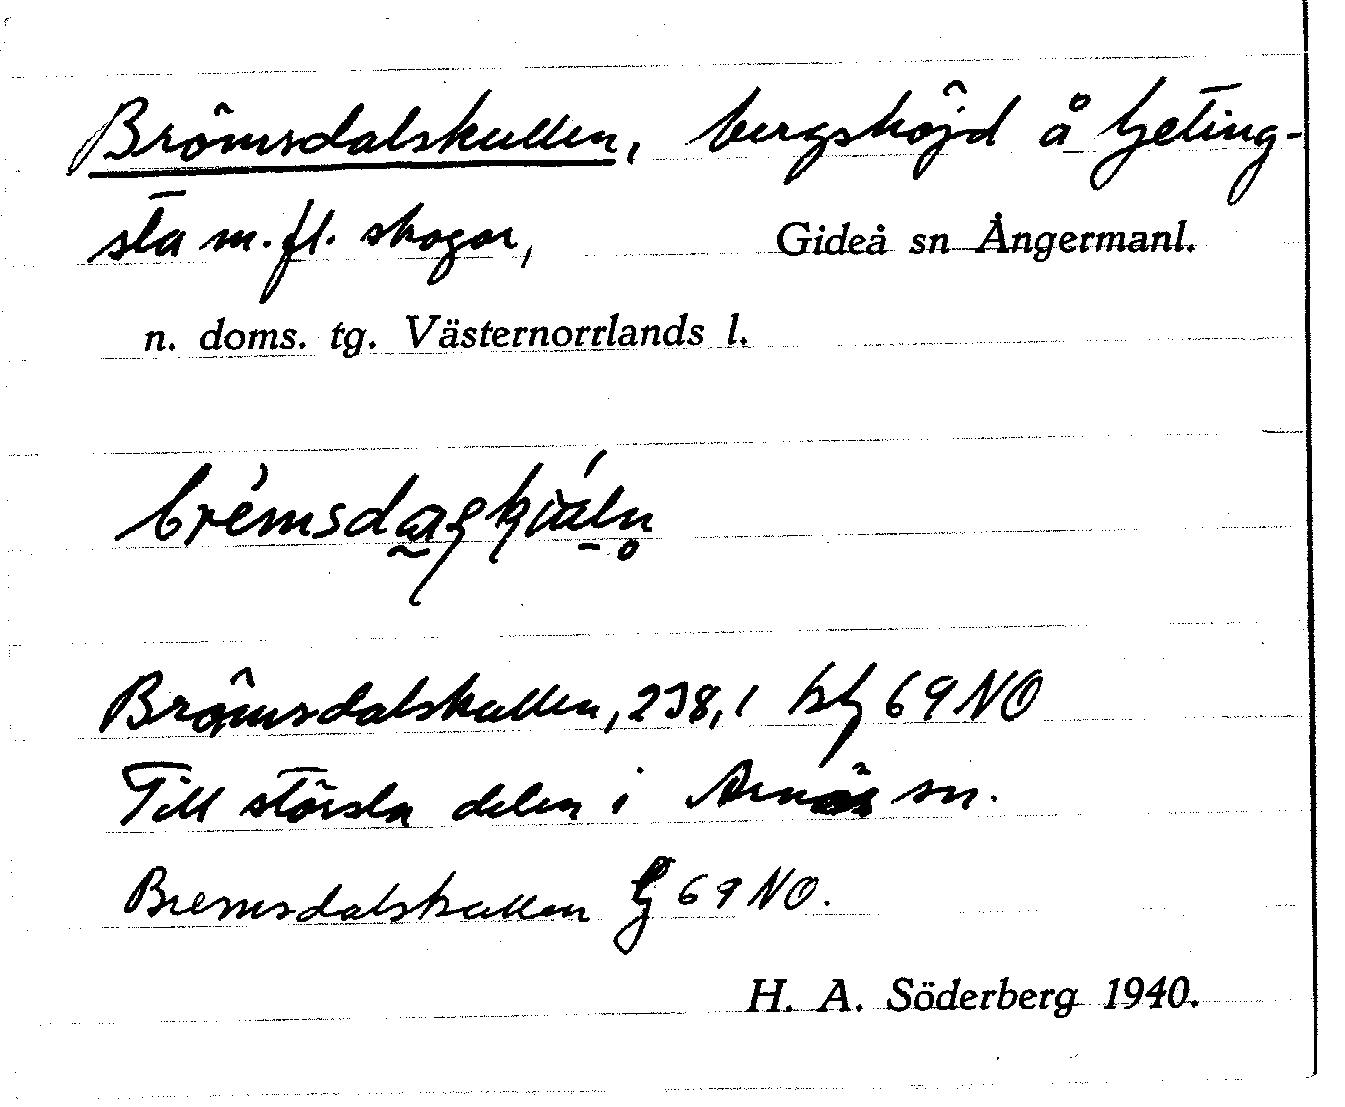 Brömsdalskullen, bergshöjd å Geting-
sta m.fl. skogar, Gideå sn Ångermanl.
n. doms. tg. Västernorrlands l.
Brömsdalskullen, 238,1 hk 69 NO
Till största delen i Arnäs sn.
Bremsdalskullen G 69 NO.
H. A. Söderberg 1940.